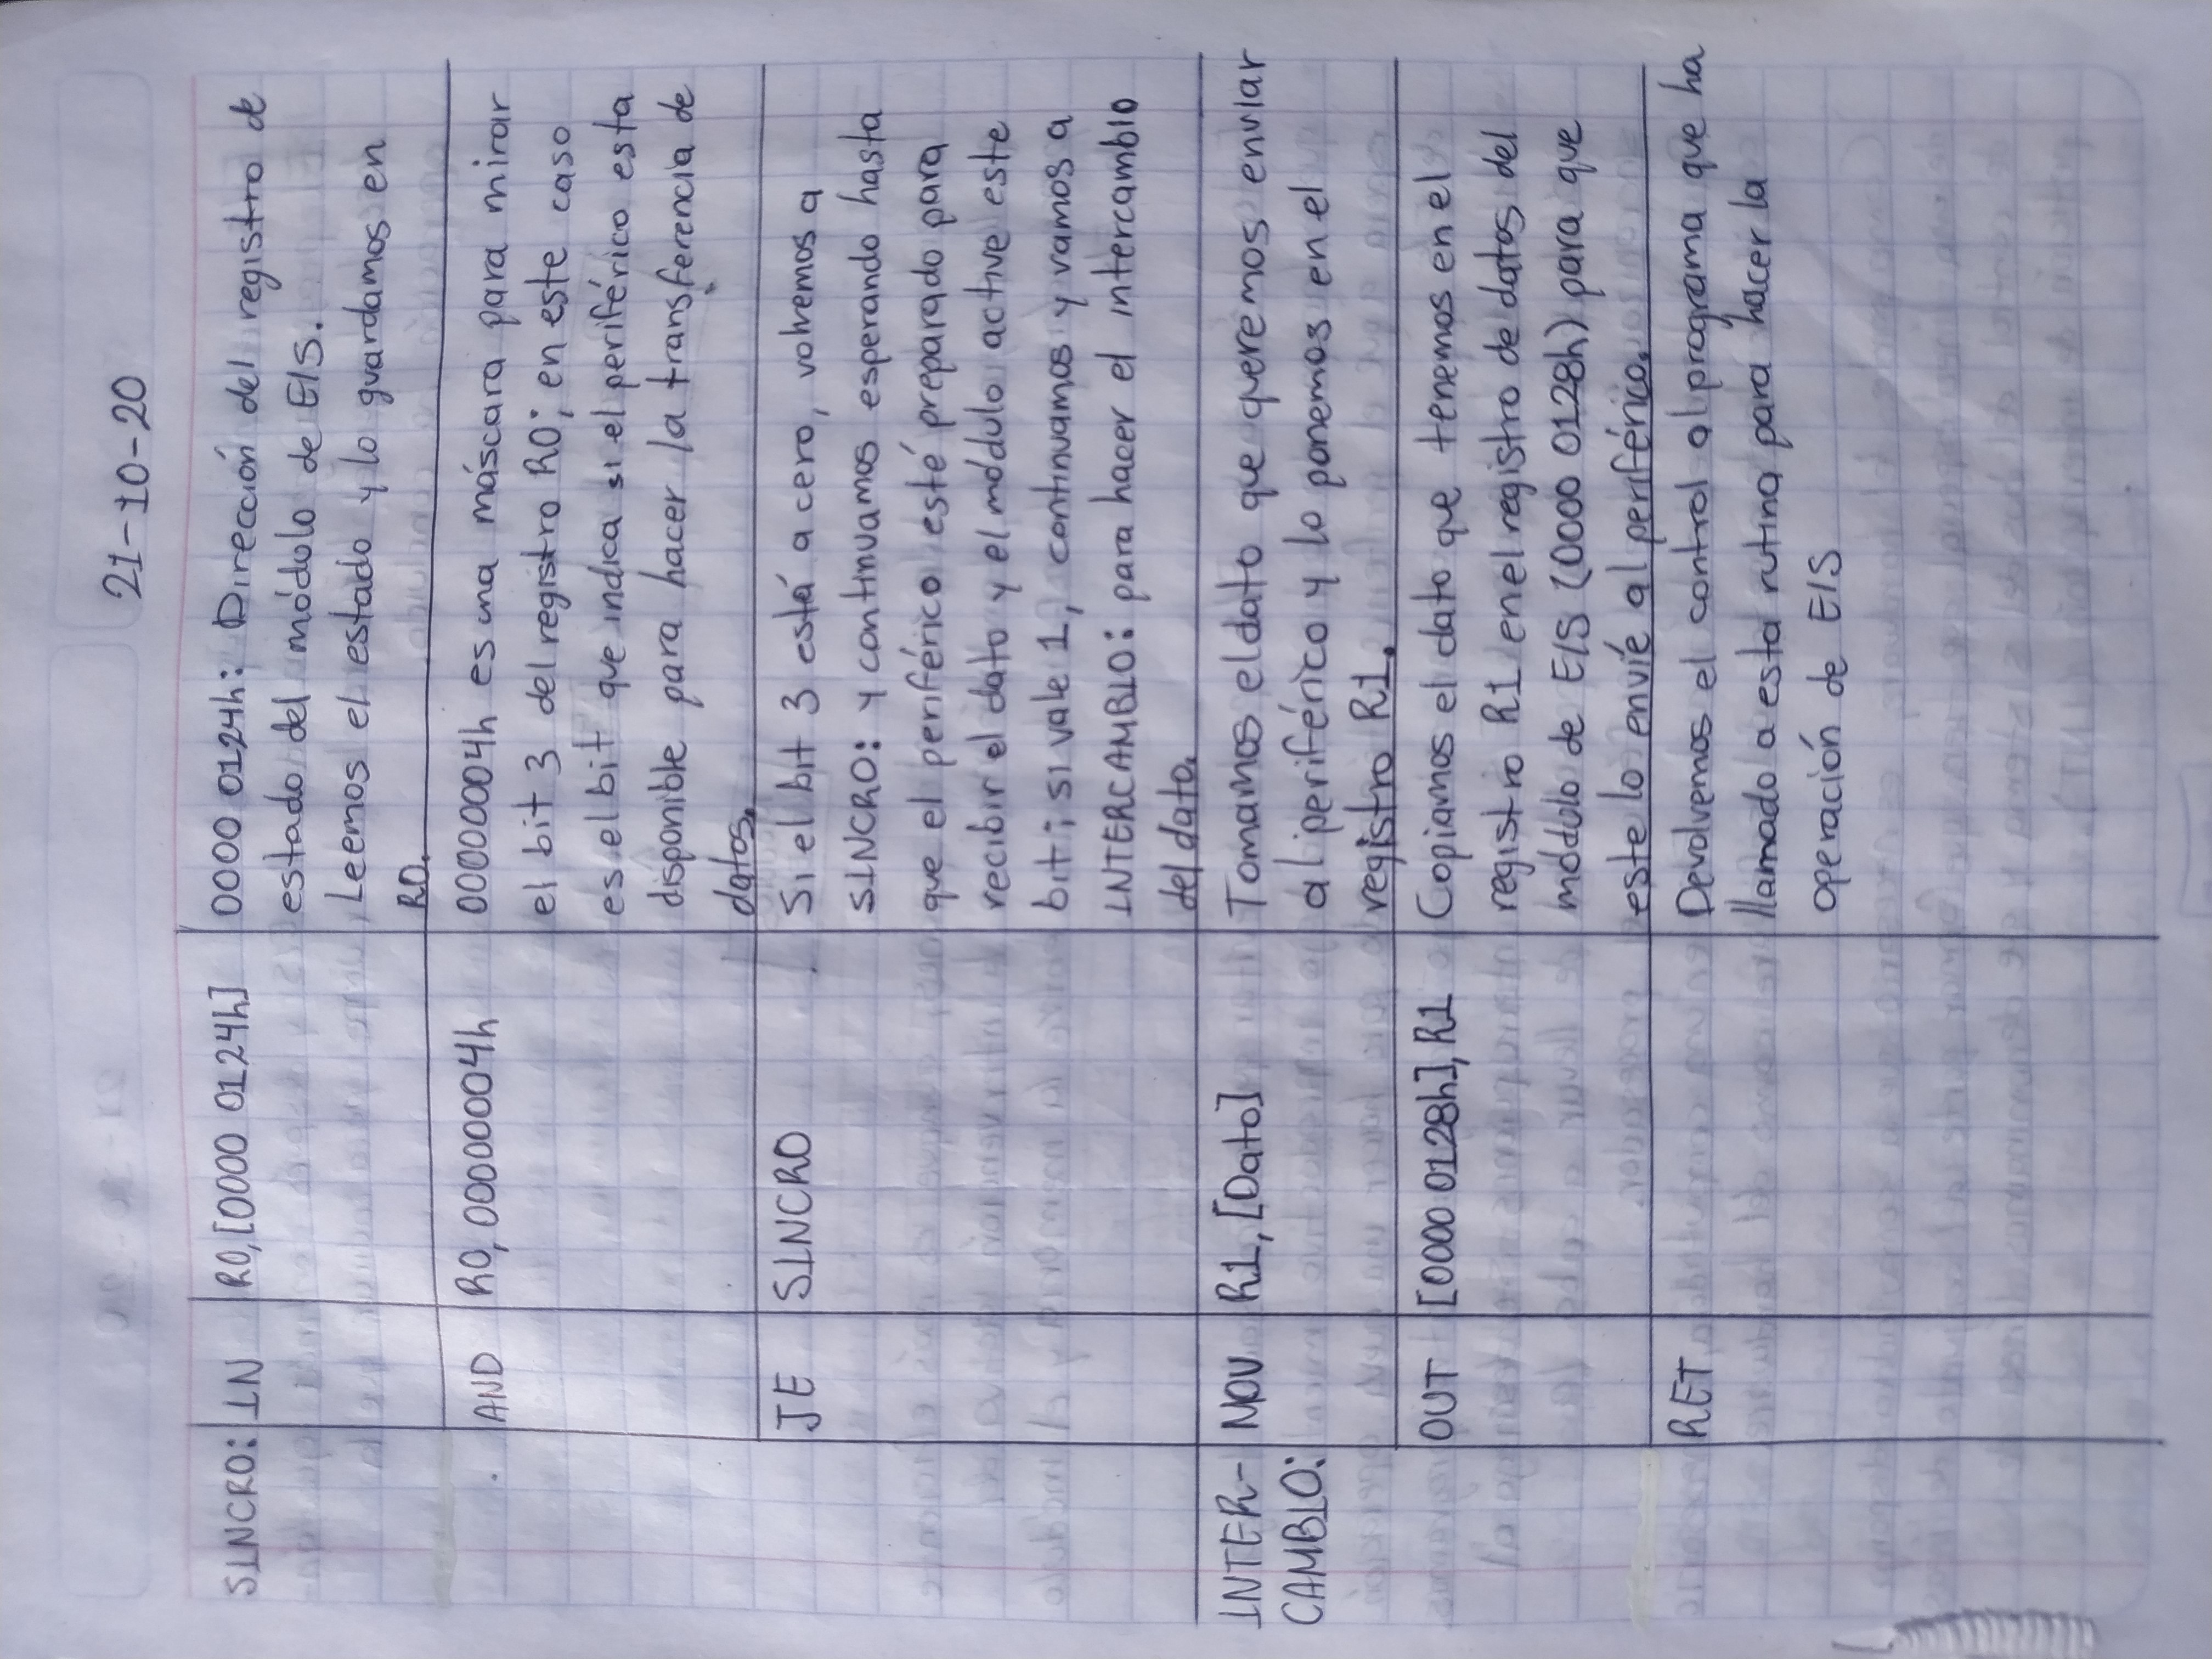 21-10-20
SINCRO: IN R0,[0000 0124h] 0000 0124h: Dirección del registro de
estado del módulo de E/S.
Leemos el estado y lo guardamos en
R0.
AND R0, 00000004h 00000004h es una máscara para mirar
el bit 3 del registro R0; en este caso
es el bit que indica si el periférico esta
disponible para hacer la transferencia de
datos.
JE SINCRO Si el bit 3 está a cero, volvemos a
SINCRO: y continuamos esperando hasta
que el periférico esté preparado para
recibir el dato y el módulo active este
bit; si vale 1, continuamos y vamos a
INTERCAMBIO: para hacer el intercambio
del dato.
INTER- MOV R1, [Dato] Tomamos el dato que queremos enviar
CAMBIO: al periférico y lo ponemos en el
registro R1.
OUT [0000 0128h], R1 Copiamos el dato que tenemos en el
registro R1 en el registro de datos del
módulo de E/S (0000 0128h) para que
este lo envíe al periférico.
RET Devolvemos el control al programa que ha
llamado a esta rutina para hacer la
operación de E/S